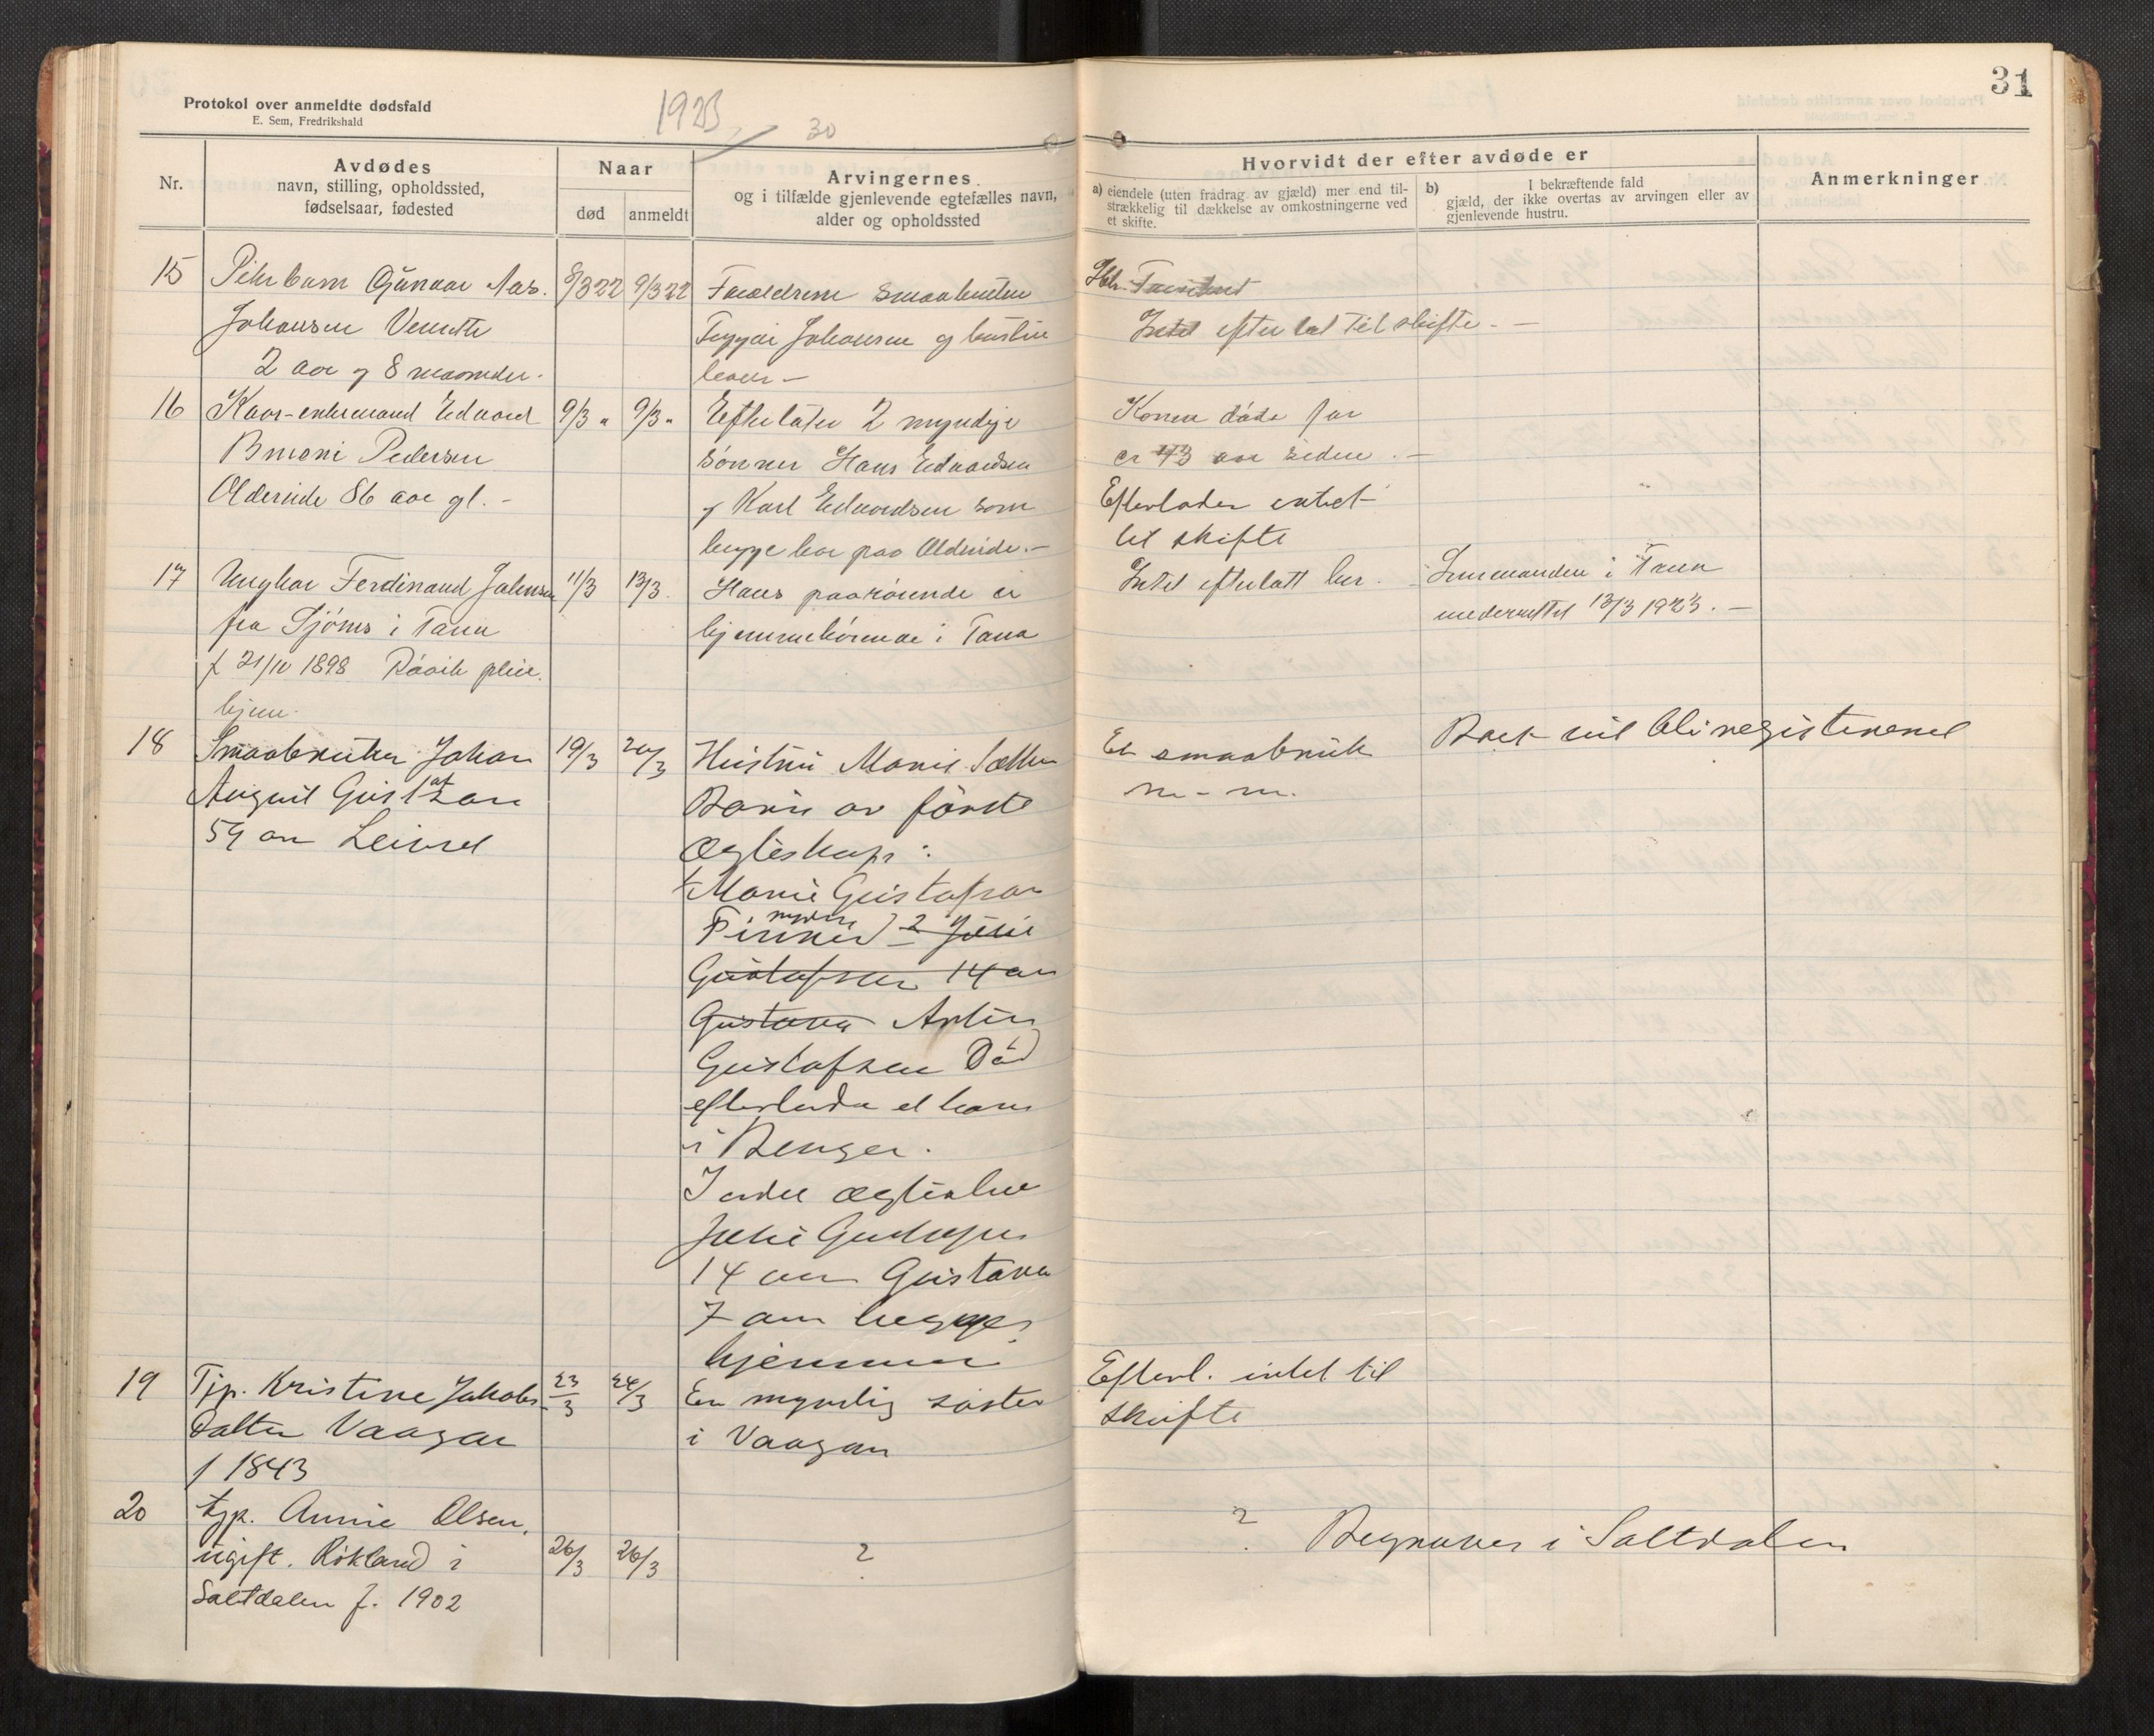 31
Protokol over anmeldte dødsfald
E. Sem, Fredrikshald
1923
30
Nr.
Avdødes
navn, stilling, opholdssted,
fødselsaar, fødested
Naar
død
anmeldt
Arvingernes
og i tilfælde gjenlevende egtefælles navn,
alder og opholdssted
Hvorvidt der efter avdøde er
a) eiendele (uten fradrag av gjæld) mer end til-
strækkelig til dækkelse av omkostningerne ved
et skifte.
b) I bekræftende fald
gjæld, der ikke overtas av arvingen eller av
gjenlevende hustru.
Anmerkninger
15 Gunnar 8/3 22 9/3 22 Forældrene smaabruker
Johansen
Johansen og hustru
Intet efterlat til skifte. -
2 aar og 8 maaneder.
lever -
16 Kaar-enkemand Edvard 9/3 " 9/3 " Efterlater 2 myndige
Konen døde for
Pedersen
sønner Hans Edvardsen
er 43 aar siden. -
Oldereide 86 aar gl. -
og Karl Edvardsen som
Efterlader intet
begge bor paa Oldereide. -
til skifte
17 Ungkar Ferdinand Johnsen 11/3 13/3. Hans paarørende er
Intet efterlatt her. -
Lensmanden i Tana
fra i Tana
hjemmehørende i Tana
underrettet 13/3 1923. -
f 21/10 1898 Røvik pleie
hjem.
18 Smaabruker Johan 19/3 20/3 Hustru Marie
Et smaabruk
Boet vil bli registreret
August Gustafson
Barn av første
m - m.
59 aar Leivset
Ægteskap:
Marie Gustafson
Finneid myndig 2 Julie
Gustafsen 14 aar
Gustava
Gustafsen Død
efterlader et barn
i
I andet ægteskap
Julie
14 aar Gustava
7 aar begge
hjemme
19 Tjp. Kristine Jakobs- 23/3 24/3 En myndig søster
Efterl. intet til
datter Vaagan
i Vaagan
skifte
f 1843
20 tjp. Annie Olsen,
ugift. Røkland i 26/3 26/3 ?
? Begraves i Saltdalen
Saltdalen f. 1902